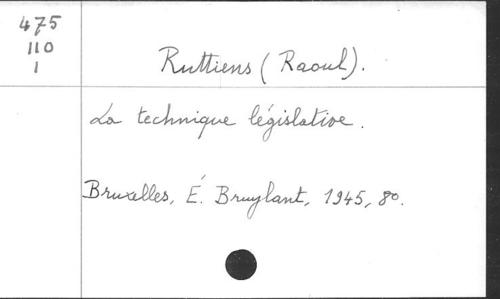 475
110
1
Ruttiens (Raoul).
La technique législative.
Bruxelles, É. Bruylant, 1945, 8o.